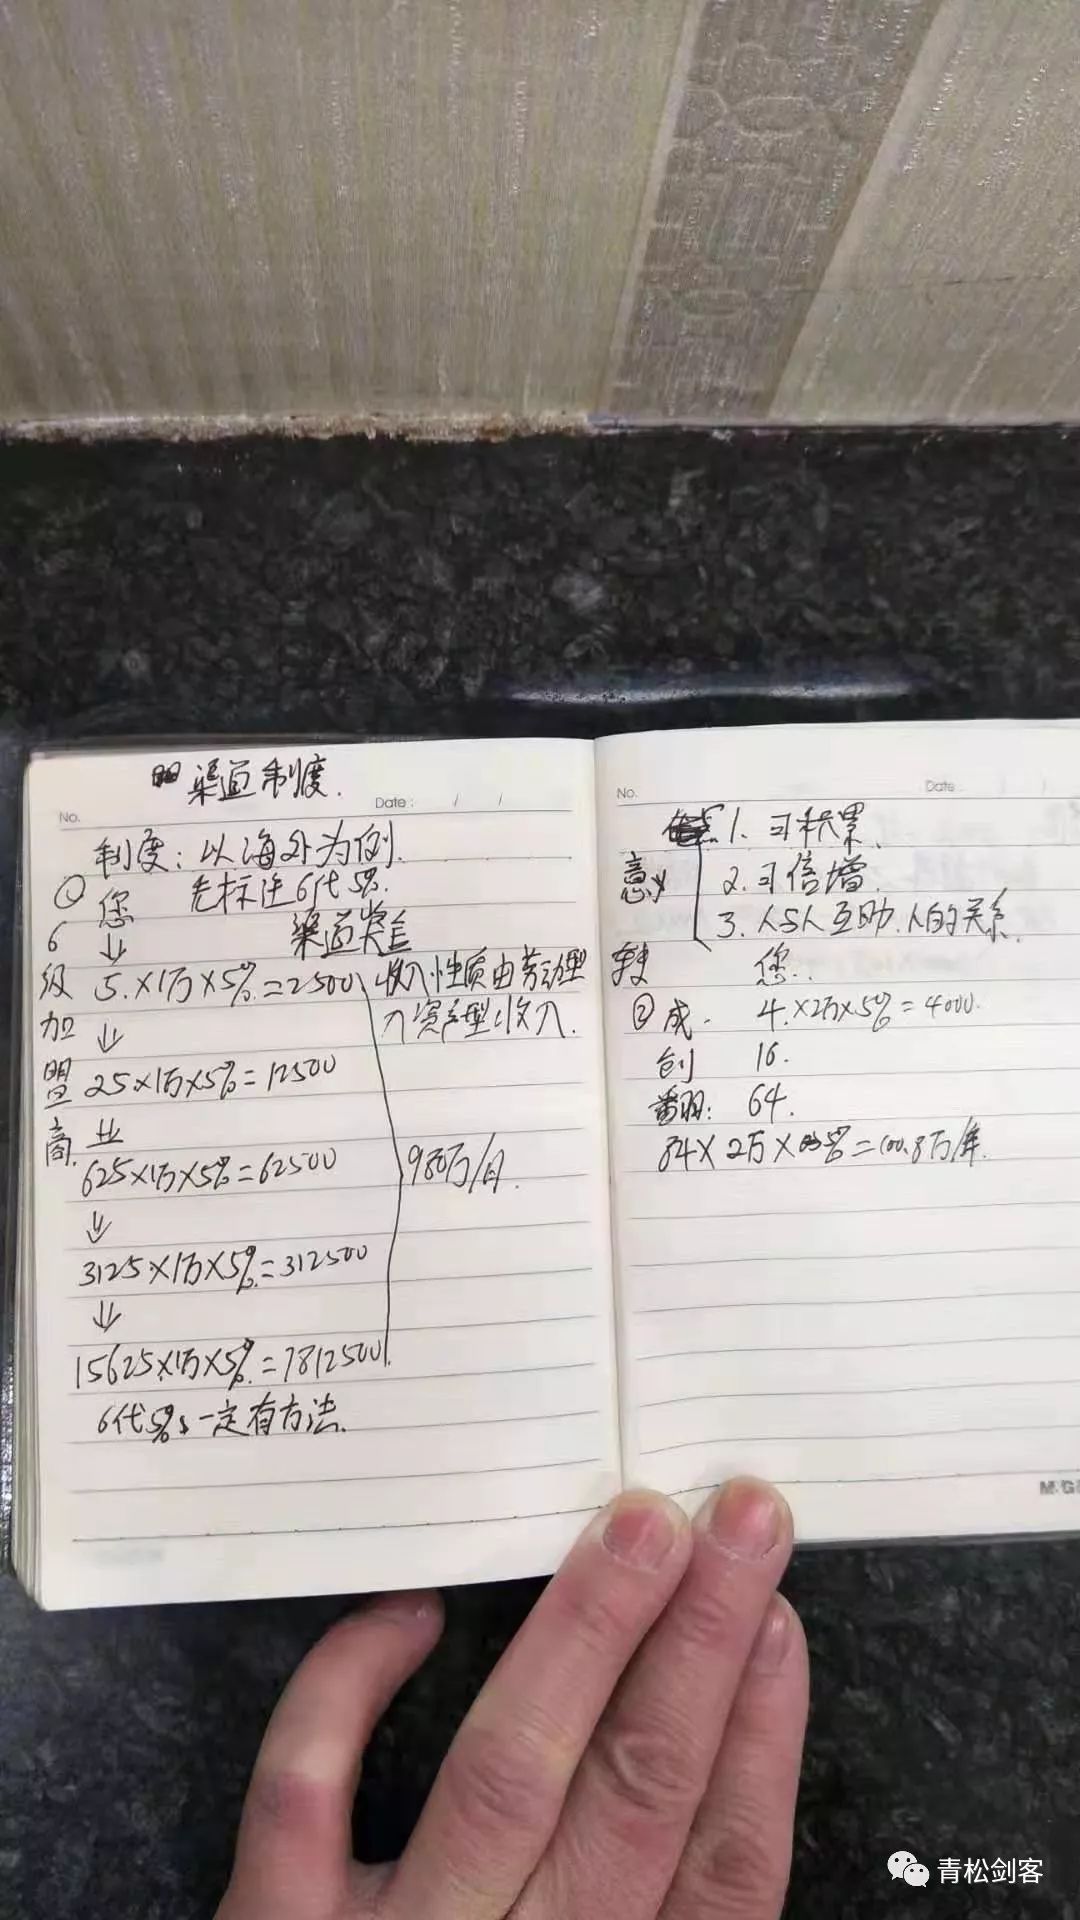 渠道制度.
No.
Date: / /
制度：以海外为例.
① 您 先标注6代5%.
渠道奖金
6级加盟商.
↓
5.×1万×5%=2500
收入性质由劳动型
入资产型收入.
↓
25×1万×5%=12500
↓
625×1万×5%=62500
980万/月.
↓
3125×1万×5%=312500
↓
15625×1万×5%=7812500
6代5%一定有方法.
No.
Date / /
意义
1.可积累.
2.可倍增.
3.人与人互助.人的关系.
您.
② 成. 4.×2万×5%=4000.
创 16.
翻: 64.
84×2万×5%=100.8万/年.
M&G
青松剑客